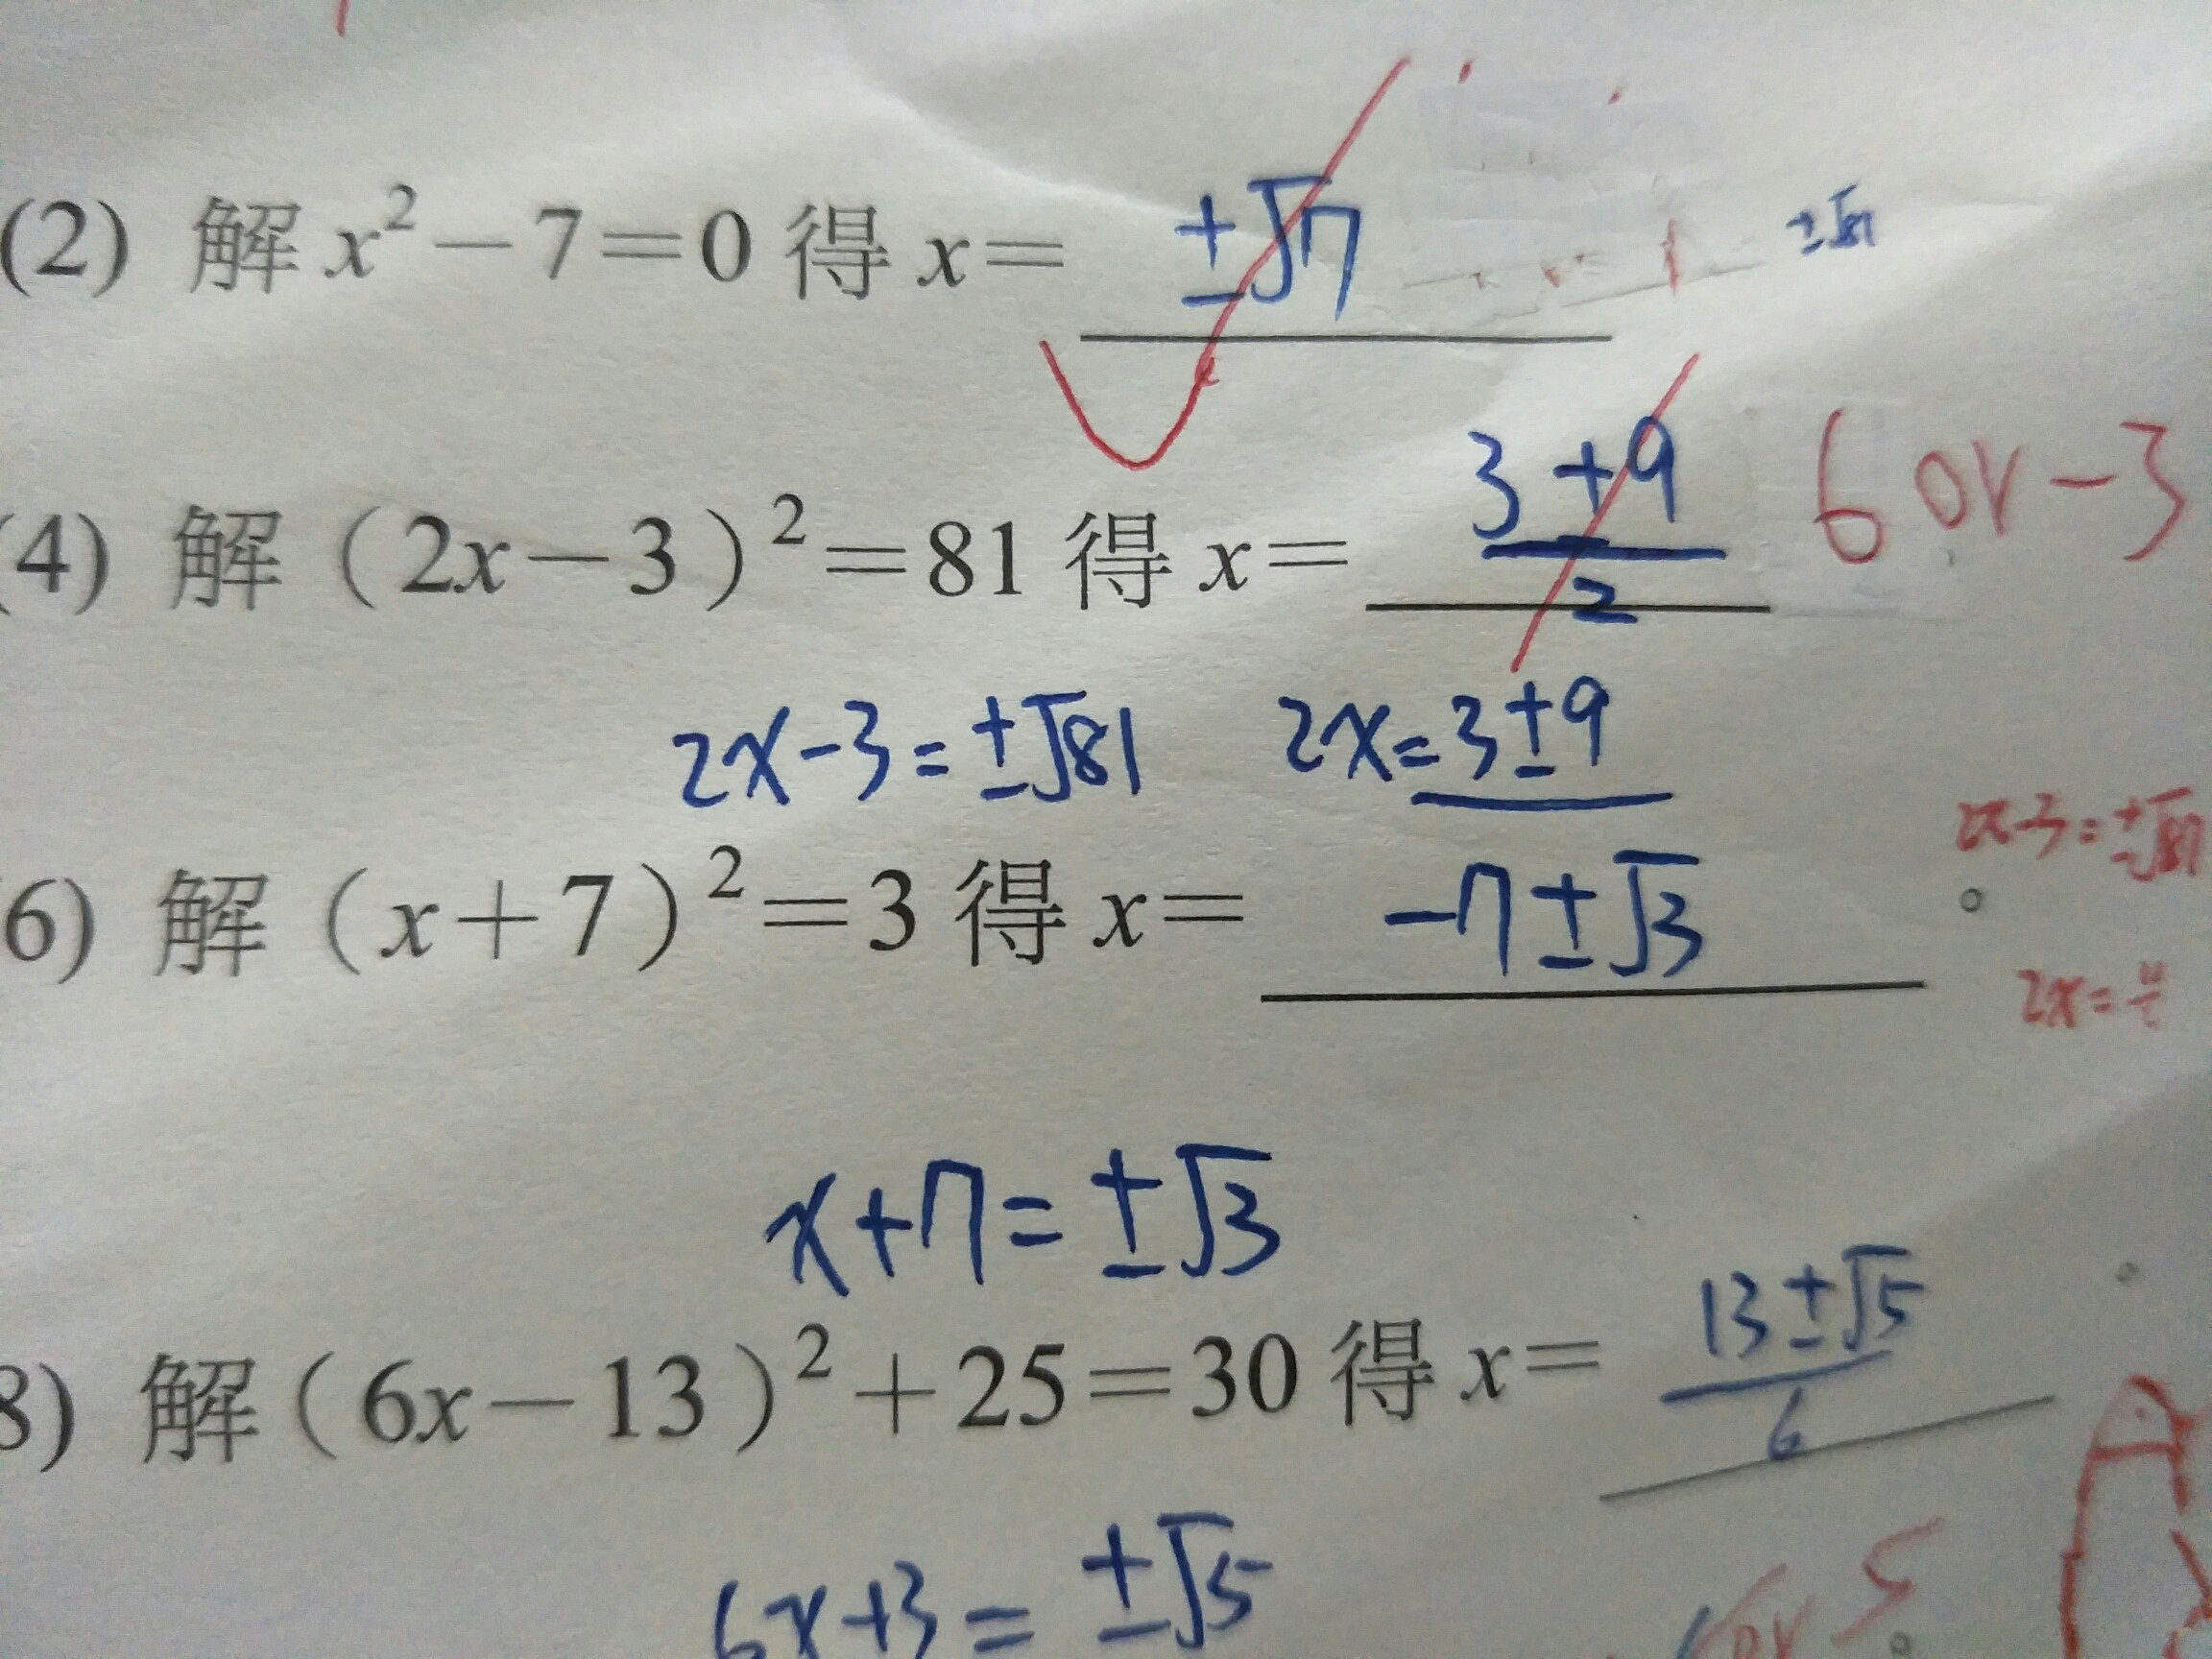 (2) 解 x²－7＝0 得 x＝ ±√7
±√81
(4) 解（2x－3）²＝81 得 x＝ 3±9/2 6 or -3
2x-3=±√81 2x=3±9
2x-3=±√81
6) 解（x＋7）²＝3 得 x＝ -7±√3 。
2x=
x+7=±√3
8) 解（6x－13）²＋25＝30 得 x＝ 13±√5/6
6x+3=±√5
or 5